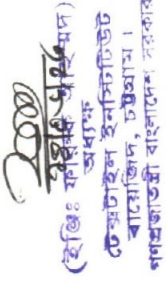 (ইঞ্জিঃ ফরিদ আহমদ)
অধ্যক্ষ
টেক্সটাইল ইনস্টিটিউট
বায়েজিদ, চট্টগ্রাম।
গণপ্রজাতন্ত্রী বাংলাদেশ সরকার